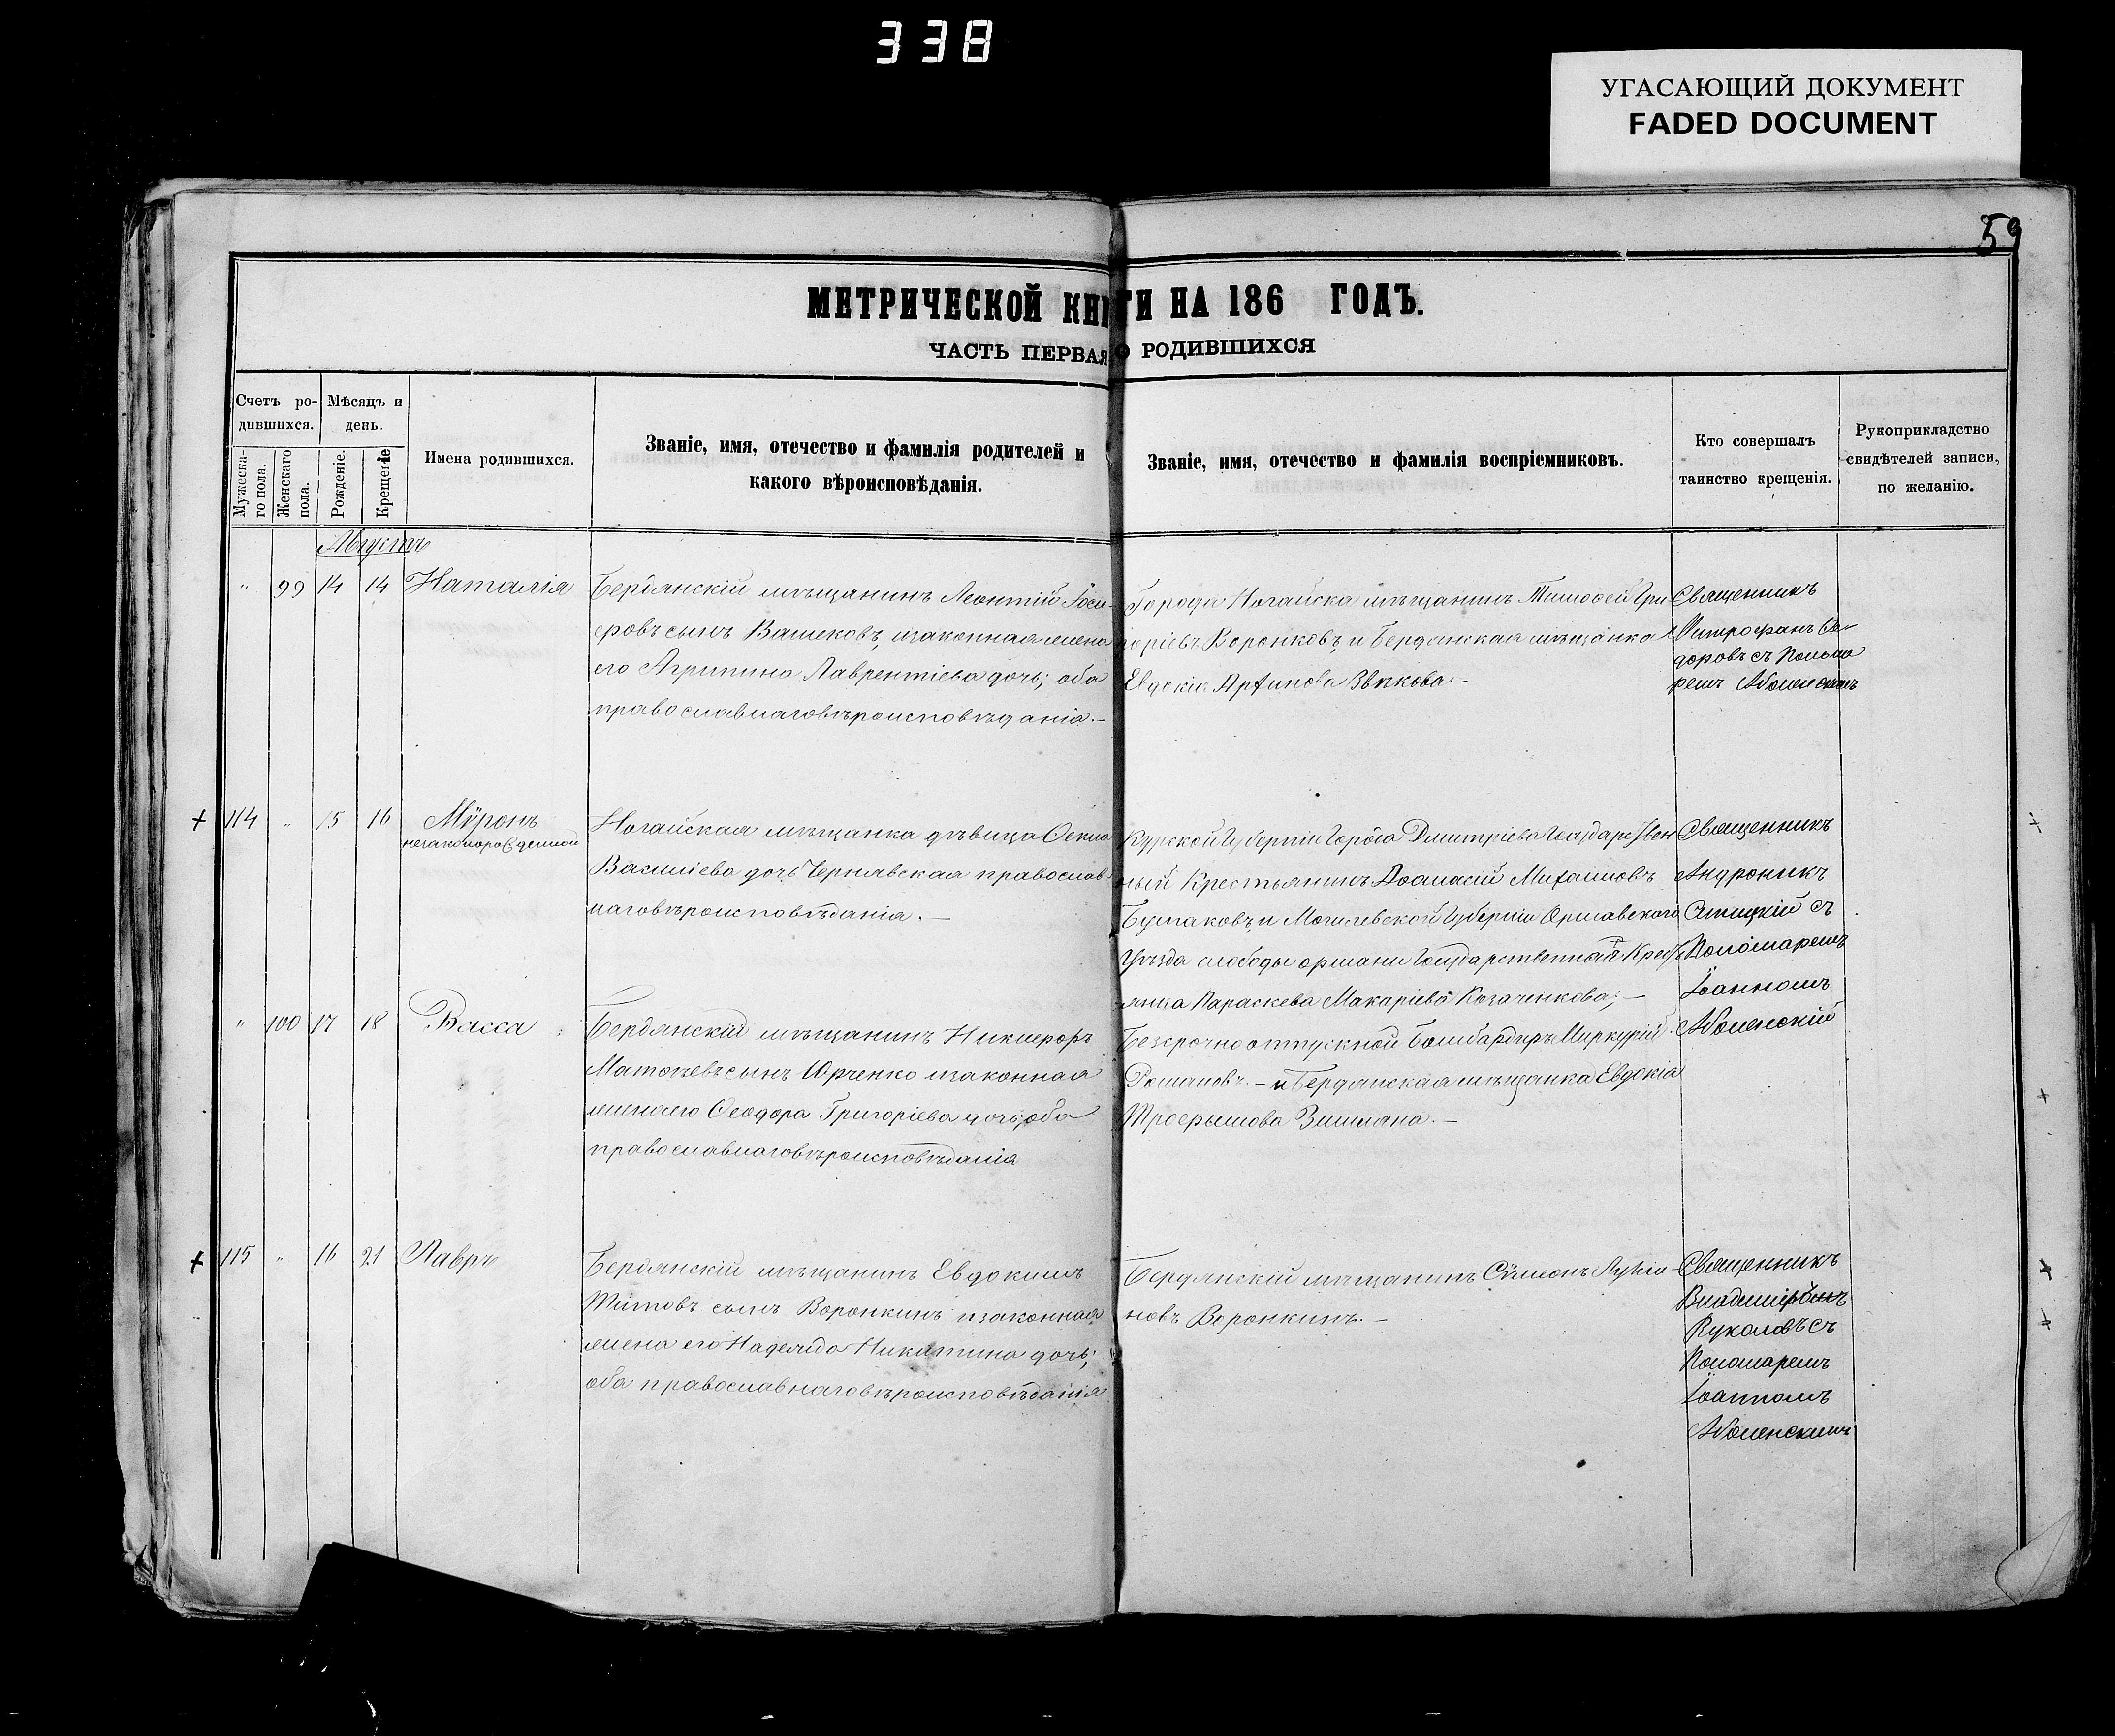 338
УГАСАЮЩИЙ ДОКУМЕНТ
FADED DOCUMENT
59
МЕТРИЧЕСКОЙ КНИГИ НА 186 ГОДЪ.
ЧАСТЬ ПЕРВАЯ О РОДИВШИХСЯ
Счетъ ро-
дившихся.
Мужеска-
го пола.
Женскаго
пола.
Мѣсяцъ и
день.
Рожденіе.
Крещеніе
Имена родившихся.
Званіе, имя, отечество и фамилія родителей и
какого вѣроисповѣданія.
Званіе, имя, отечество и фамилія воспріемниковъ.
Кто совершалъ
таинство крещенія.
Рукоприкладство
свидѣтелей записи,
по желанію.
Августъ
" 99 14 14 Наталія
Бердянскій мѣщанинъ Леонтій Іоси-
фовъ сынъ Вашековъ, изаконная жена
его Агрипина Лаврентіева дочь; оба
православнаговѣроисповѣданія.-
Города Ногайска мѣщанинъ Тимоѳей Гри-
горіевъ Воронковъ, и Бердянская мѣщанка
Евдокія Архипова Звѣкова.-
Священникъ
Митрофанъ Ѳе-
доровъ съ Поном
remъ Аболенскимъ
+ 114 " 15 16 Мѵронъ
незаконорожденной
Ногайская мѣщанка дѣвица Ѳекла
Василіева дочь Чернявская православ-
наговѣроисповѣданія.-
Курской Губерніи Города Дмитріева Государствен
ный Крестьянинъ Аѳанасій Михаиловъ
Булгаковъ, и Могилевской Губерніи Оршавскаго
Уѣзда слободы оршани Государственная Кресть
янка Параскева Макаріева Козаченкова;-
Священникъ
Андроникъ
съ
Пономаремъ
Іоанномъ
Аболенскій
" 100 17 18 Васса
Бердянскій мѣщанинъ Никифоръ
Матѳеевъ сынъ Юрченко изаконная
женаего Ѳеодора Григоріева дочь; оба
православнаговѣроисповѣданія
Безсрочноотпускной Бомбардиръ Миркурій
Романовъ.- и Бердянская мѣщанка Евдокія
Трофымова Зимина.-
+ 115 " 16 21 Лавръ
Бердянскій мѣщанинъ Евдокимъ
Титовъ сынъ Воронкинъ изаконная
жена его Надежда Никитина дочь;
оба православнаговѣроисповѣданія
Бердянскій мѣщанинъ Сѵмеонъ Лукія-
новъ Воронкинъ.-
Священникъ
Владиміръ
Руколовъ съ
Пономаремъ
Іоанномъ
Аболенскимъ